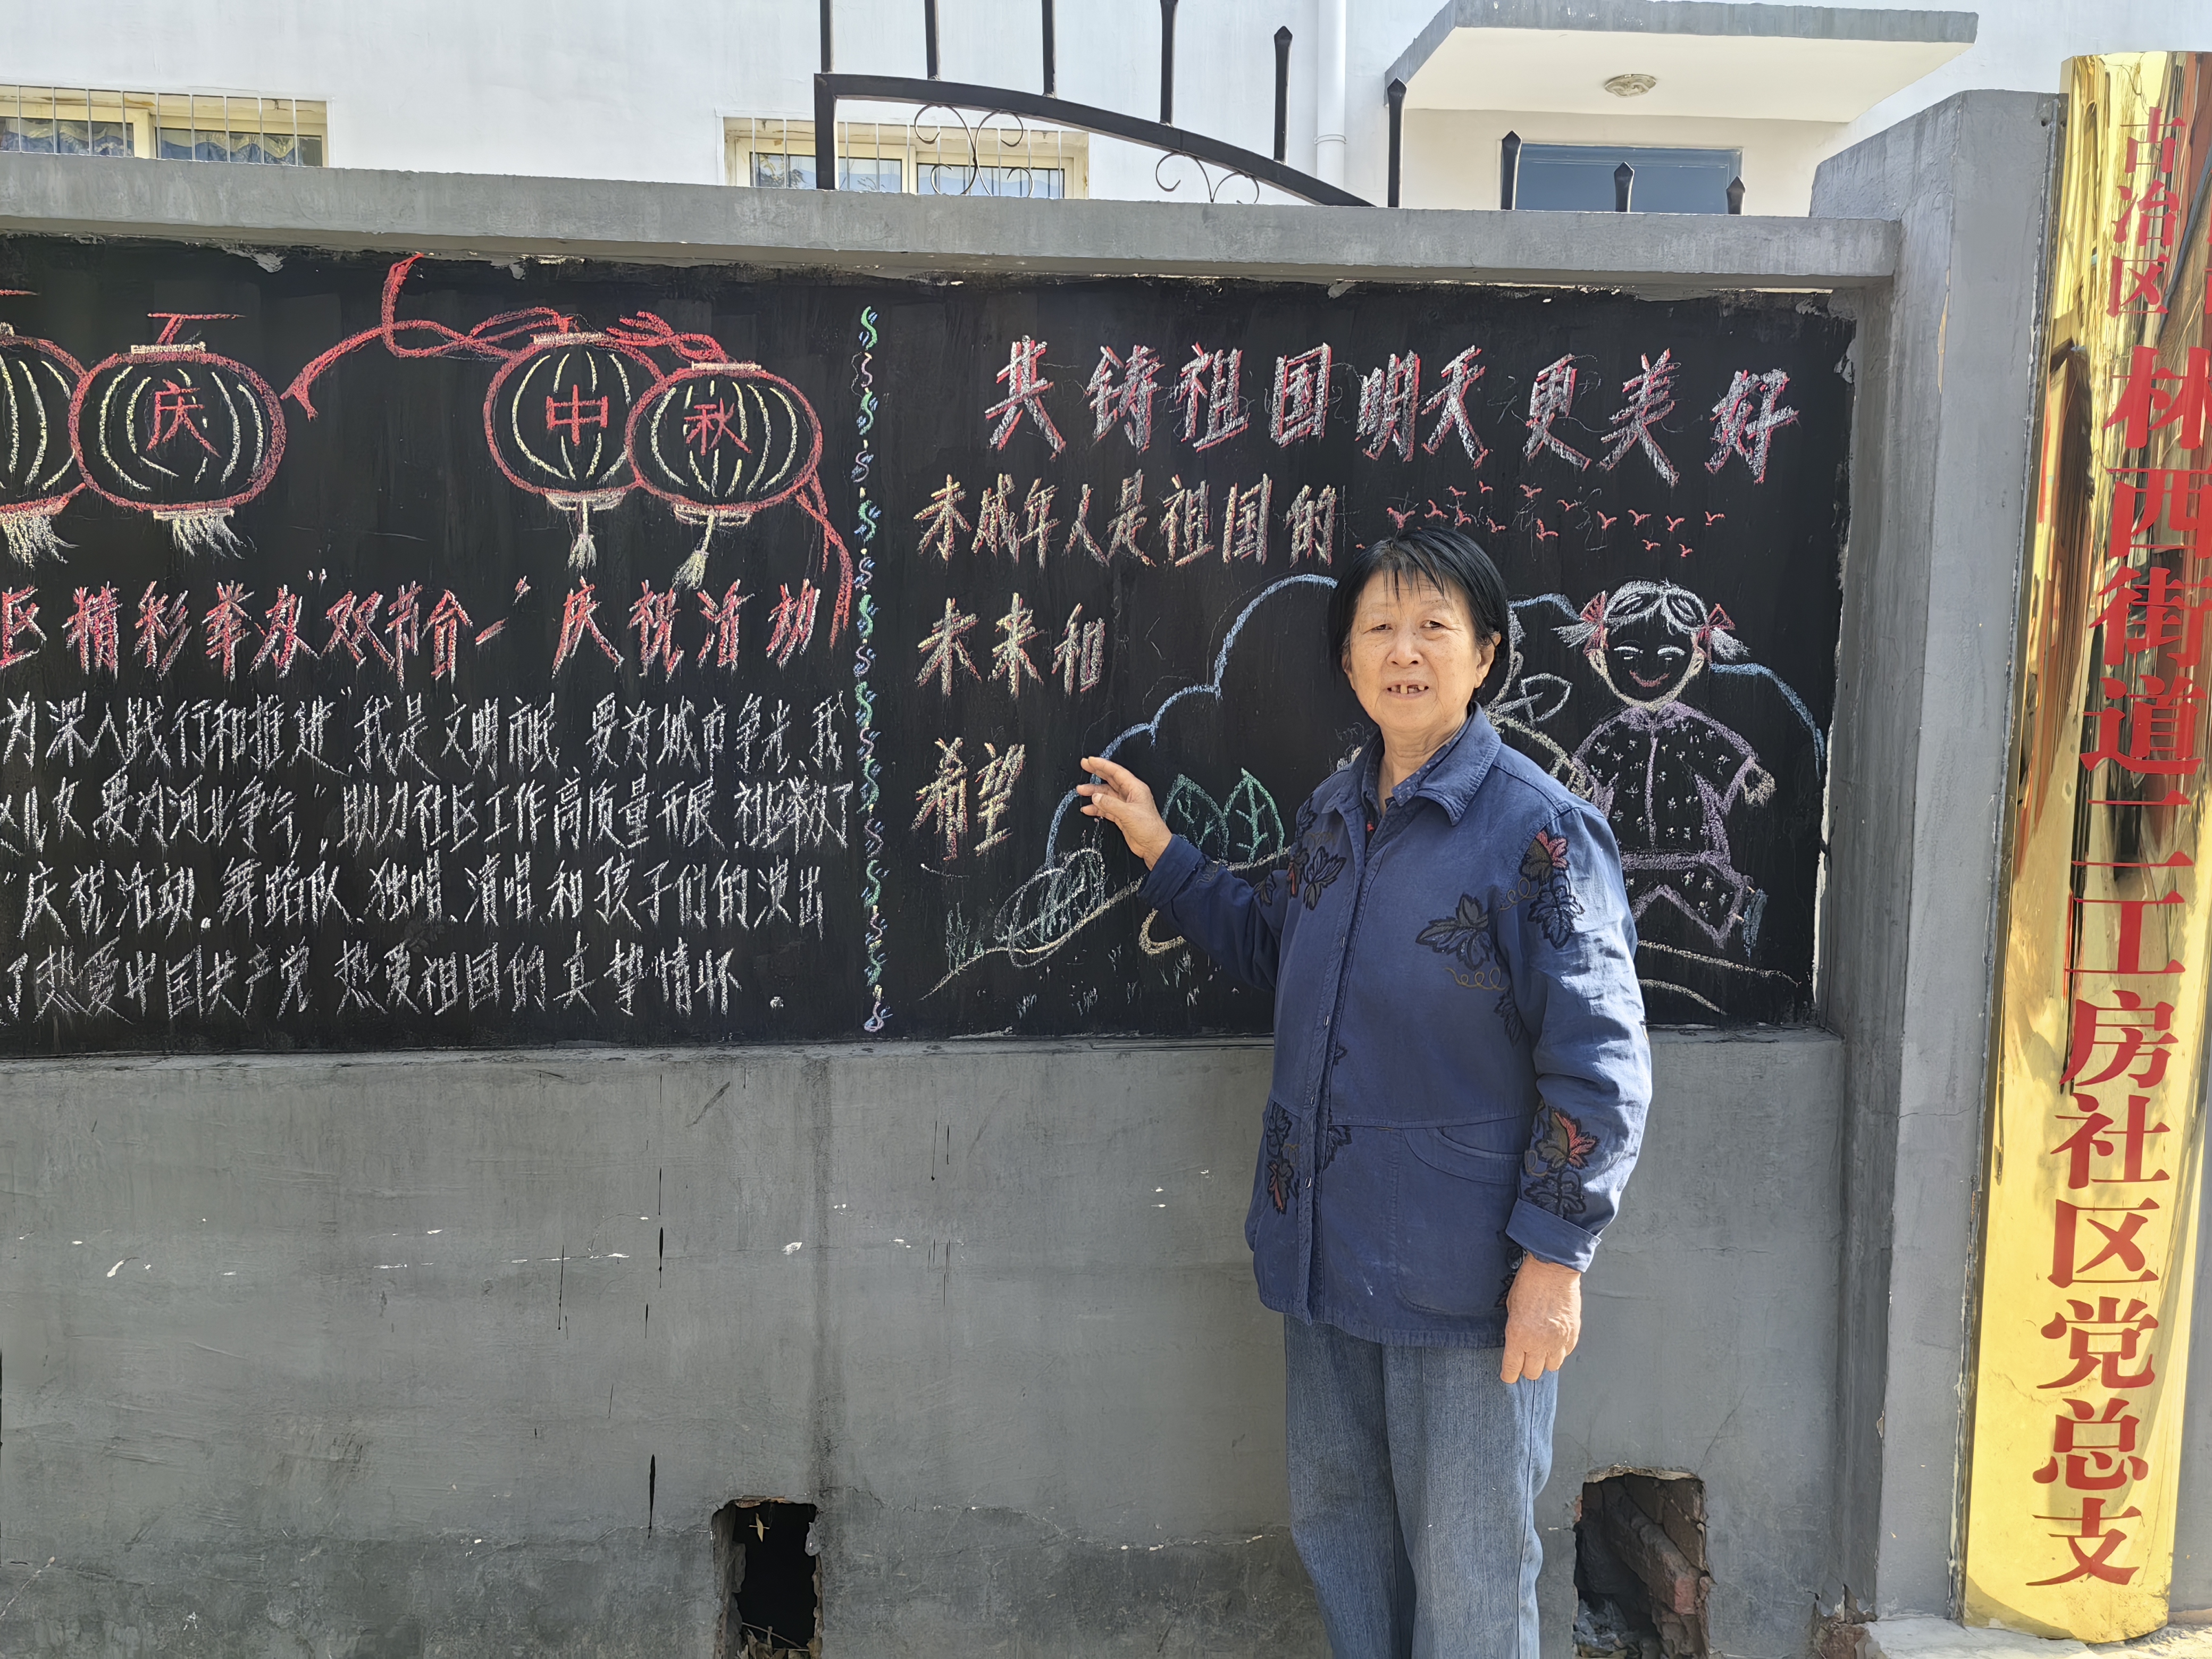 庆 中 秋
区精彩举办"双节合一"庆祝活动
为深入践行和推进"我是文明市民 要为城市争光、我
儿女、要为河北争气"助力社区工作高质量开展、社区举办了
"庆祝活动、舞蹈队、独唱、清唱、和孩子们的演出
了热爱中国共产党、热爱祖国的真挚情怀。
共铸祖国明天更美好
未成年人是祖国的
未来和
希望
古冶区
林西街道三工房社区党总支